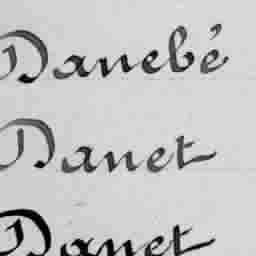 Danebé
Danet
Danet